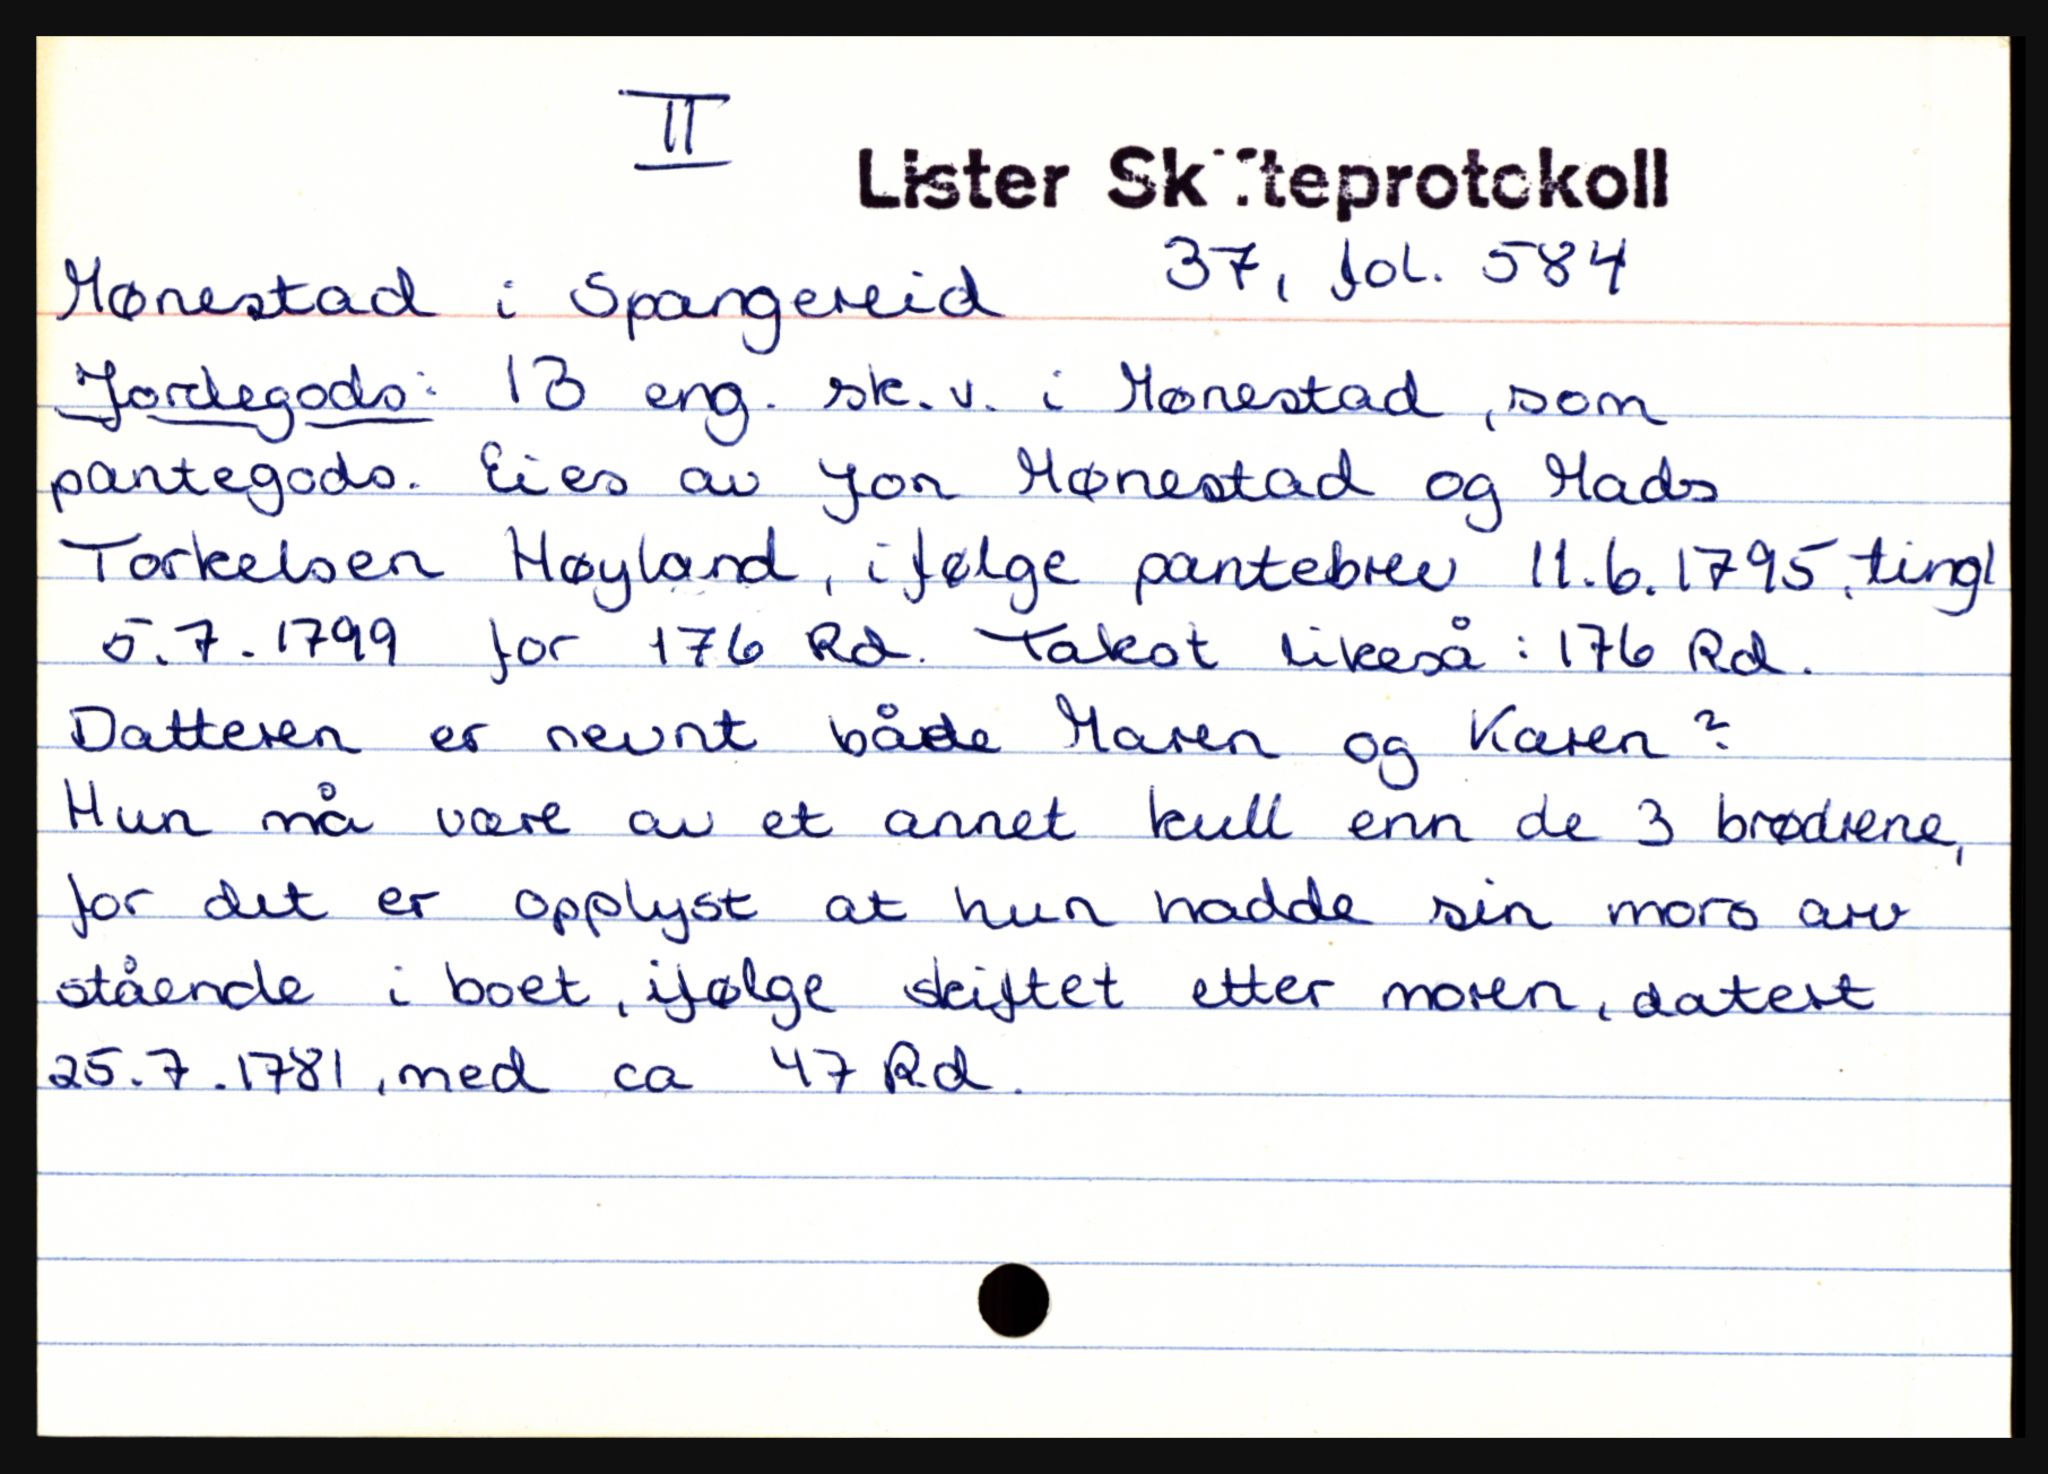 II
Lister Skifteprotokoll
37, fol. 584
Mønestad i Spangereid
Jordegods: 1 B eng. sk. v. i Mønestad, som
pantegods. Eies av Jon Mønestad og Mads
Torkelsen Høyland, ifølge pantebrev 11.6.1795, tingl
5.7.1799 for 176 Rd. Takst likeså: 176 Rd.
Datteren er nevnt både Maren og Karen?
Hun må være av et annet kull enn de 3 brødrene,
for det er opplyst at hun hadde sin mors arv
stående i boet, ifølge skiftet etter moren, datert
25.7.1781, med ca 47 Rd.